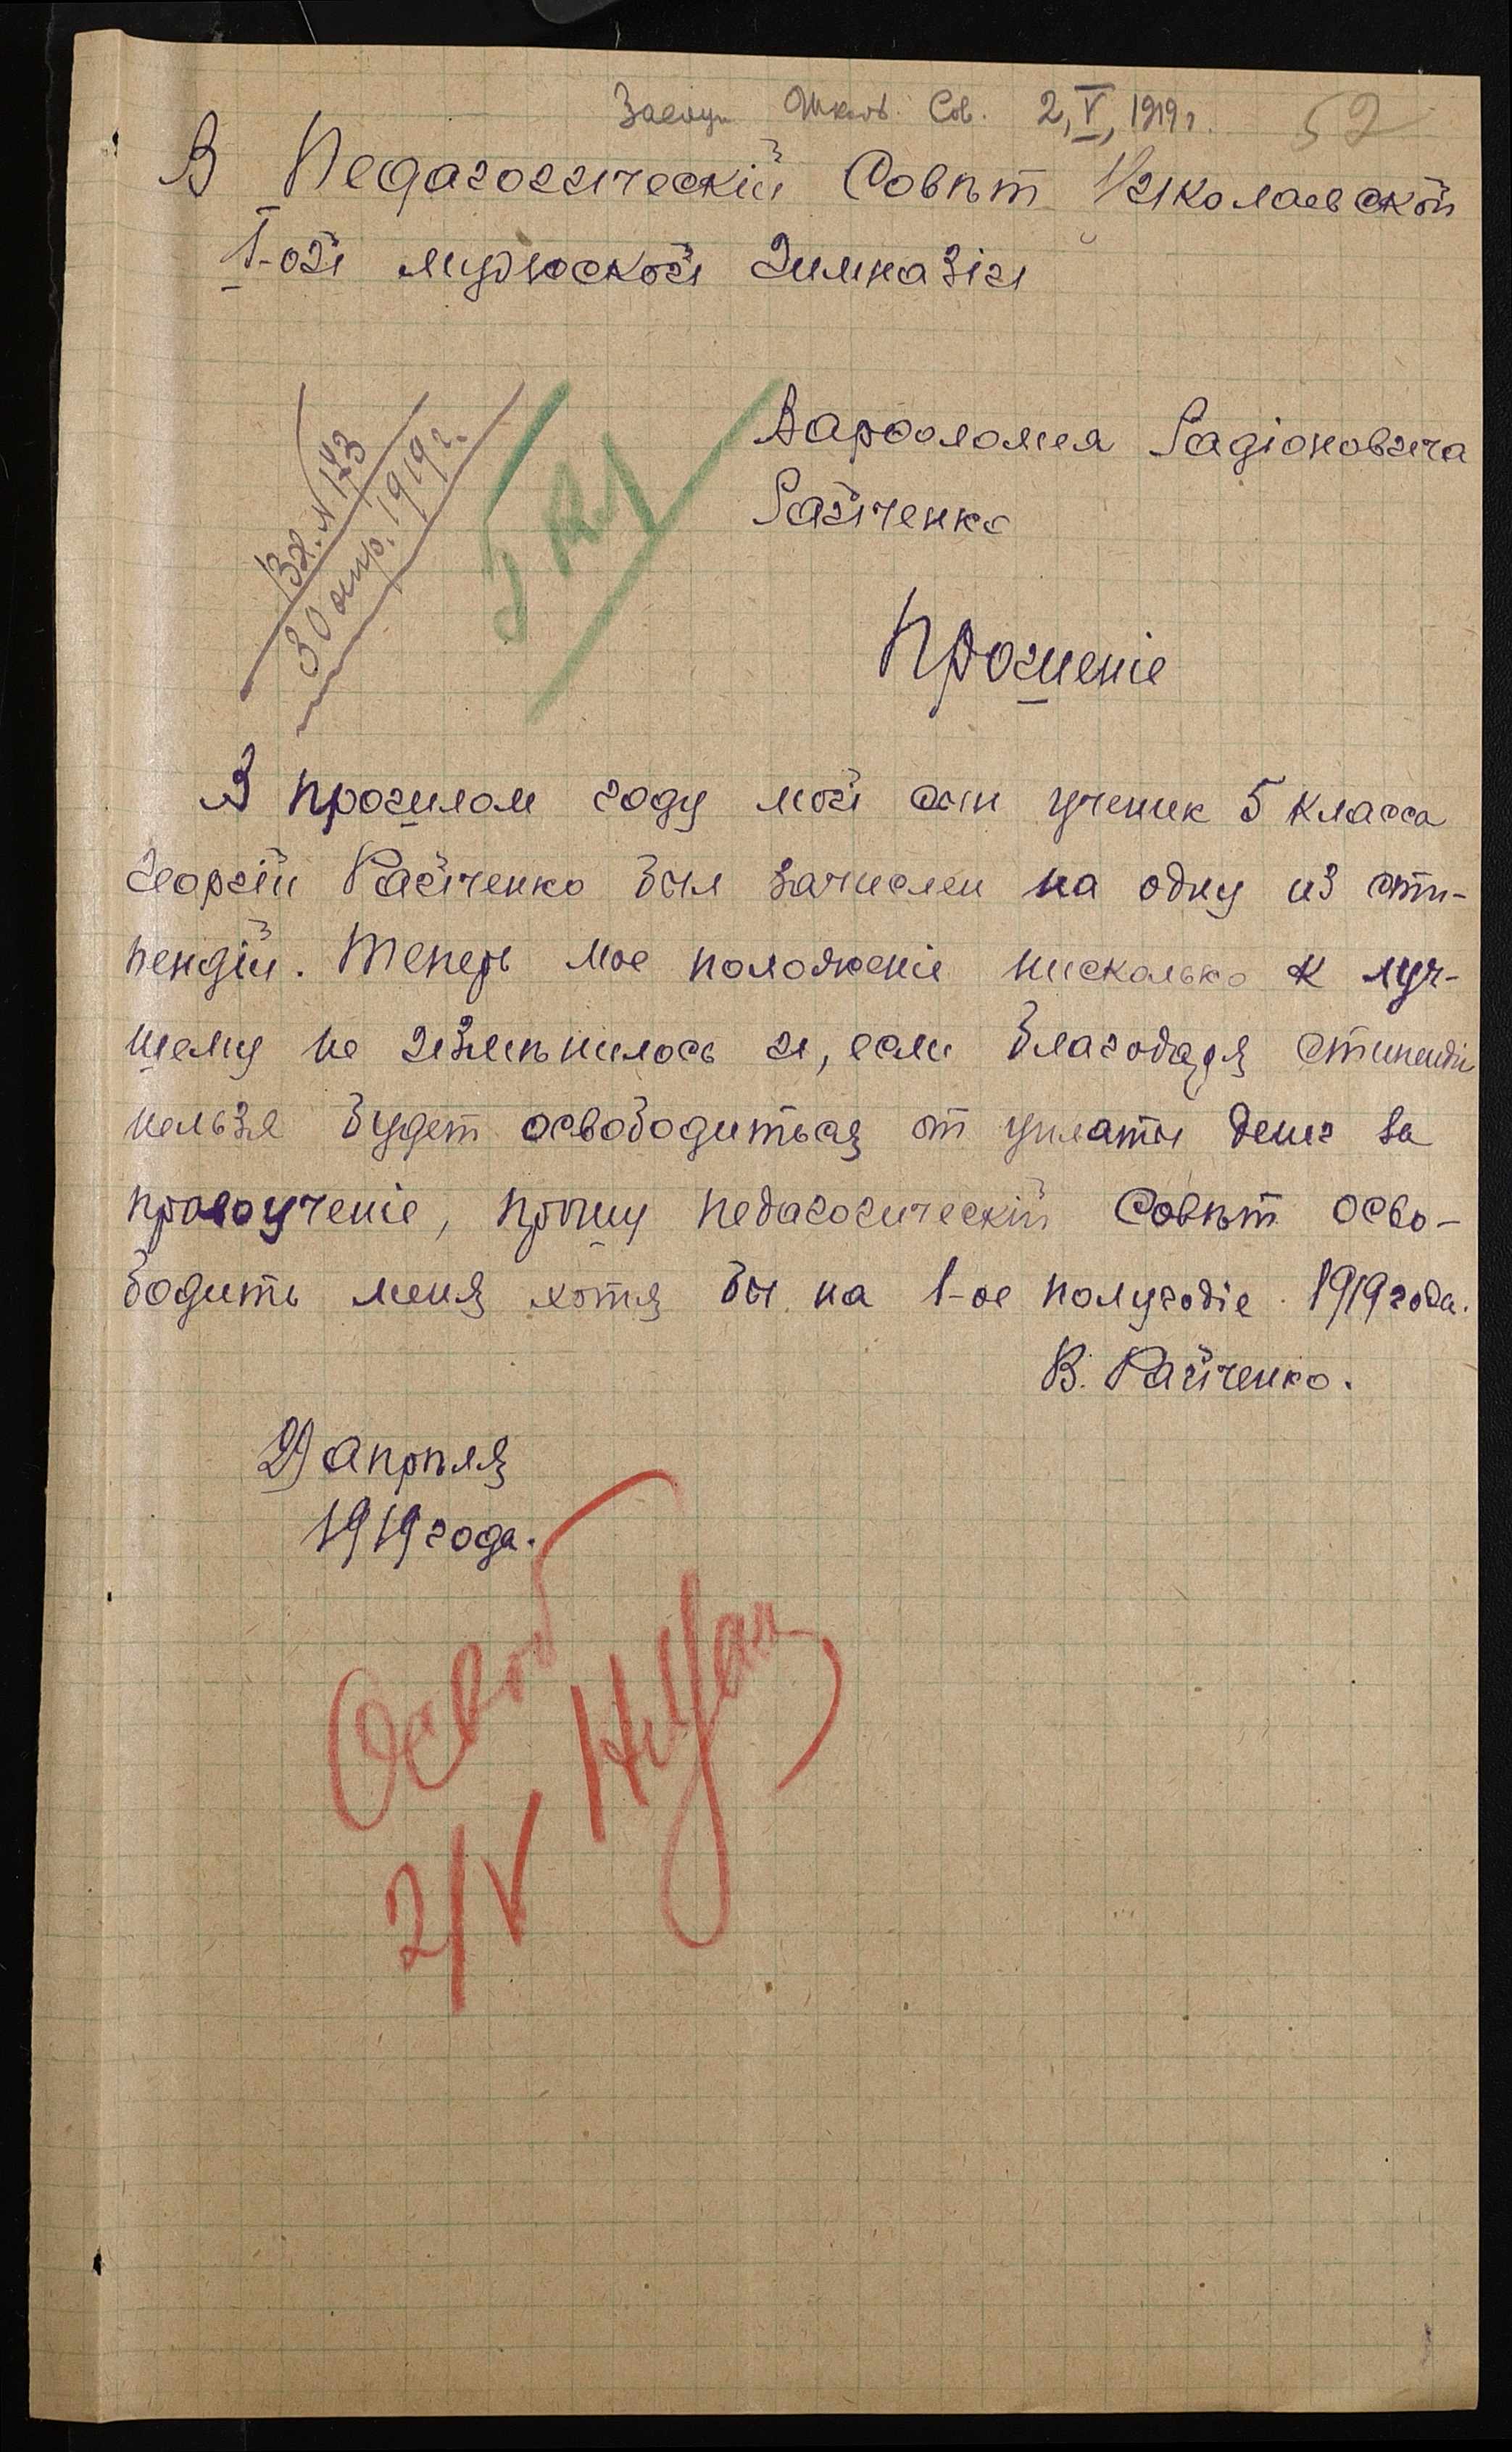 Школ. Сов. 2, V, 1919 г. 52
В Педагогическій Совѣт Николаевской
I-ой мужской Гимназіи
Вх. N 173
30 апр. 1919 г.
Варфоломея Радіоновича
Райченко
Прошеніе
В прошлом году мой сын ученик 5 класса
Георгій Райченко был зачислен на одну из сти-
пендій. Теперь мое положеніе нисколько к луч-
шему не измѣнилось и, если благодаря стипендіи
нельзя будет освободиться от уплаты денег за
правоученіе, прошу педагогическій Совѣт осво-
бодить меня хотя бы на 1-ое полугодіе 1919 года.
В. Райченко.
29 апрѣля
1919 года.
Освоб
2/V